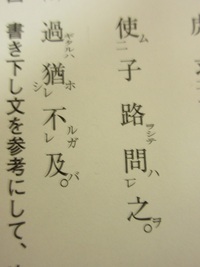 使ム二子路ヲシテ問ハ一レ之ヲ。
過ギタルハ猶ホシレ不ルガレ及バ。
書き下し文を参考にして、